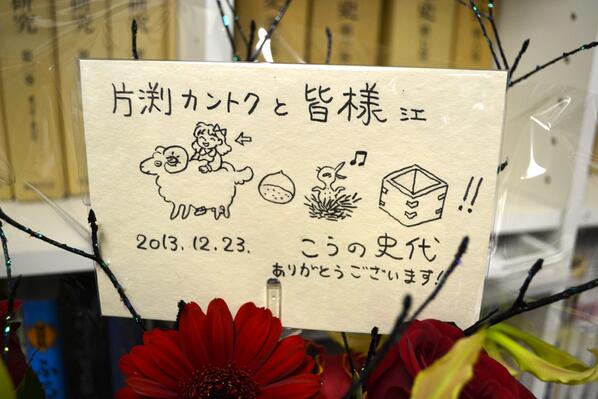 片渕カントクと皆様江
←
♫
!!
2013.12.23.
こうの史代
ありがとうございます!